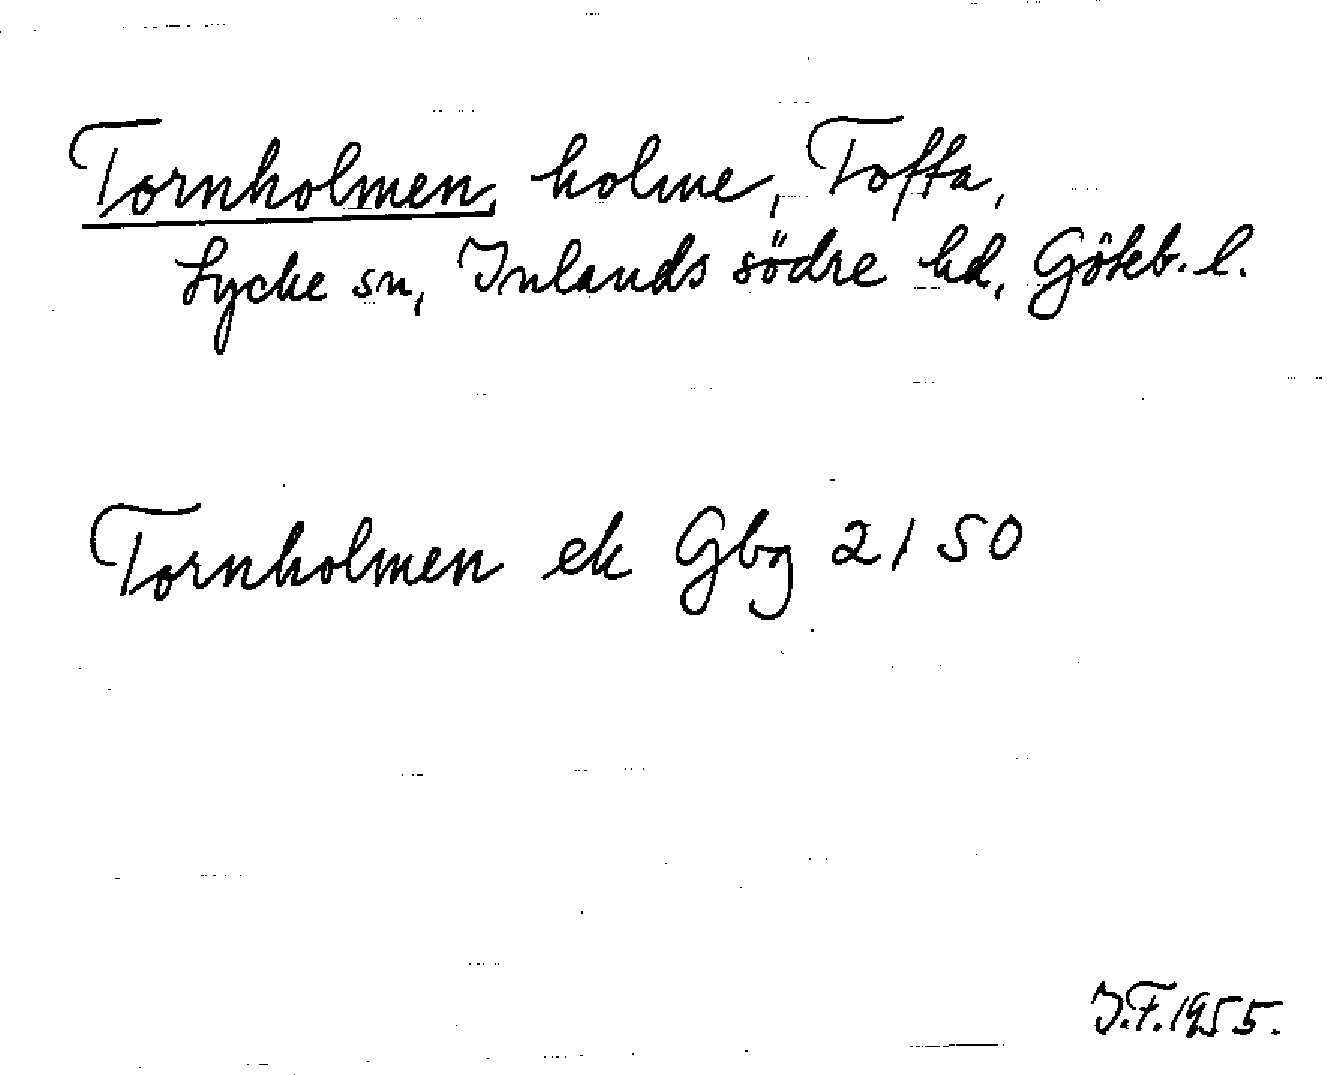 Tornholmen, holme, Tofta,
Lycke sn, Inlands södre hd, Göteb. l.
Tornholmen ek Gbg 2150
J.F. 1955.